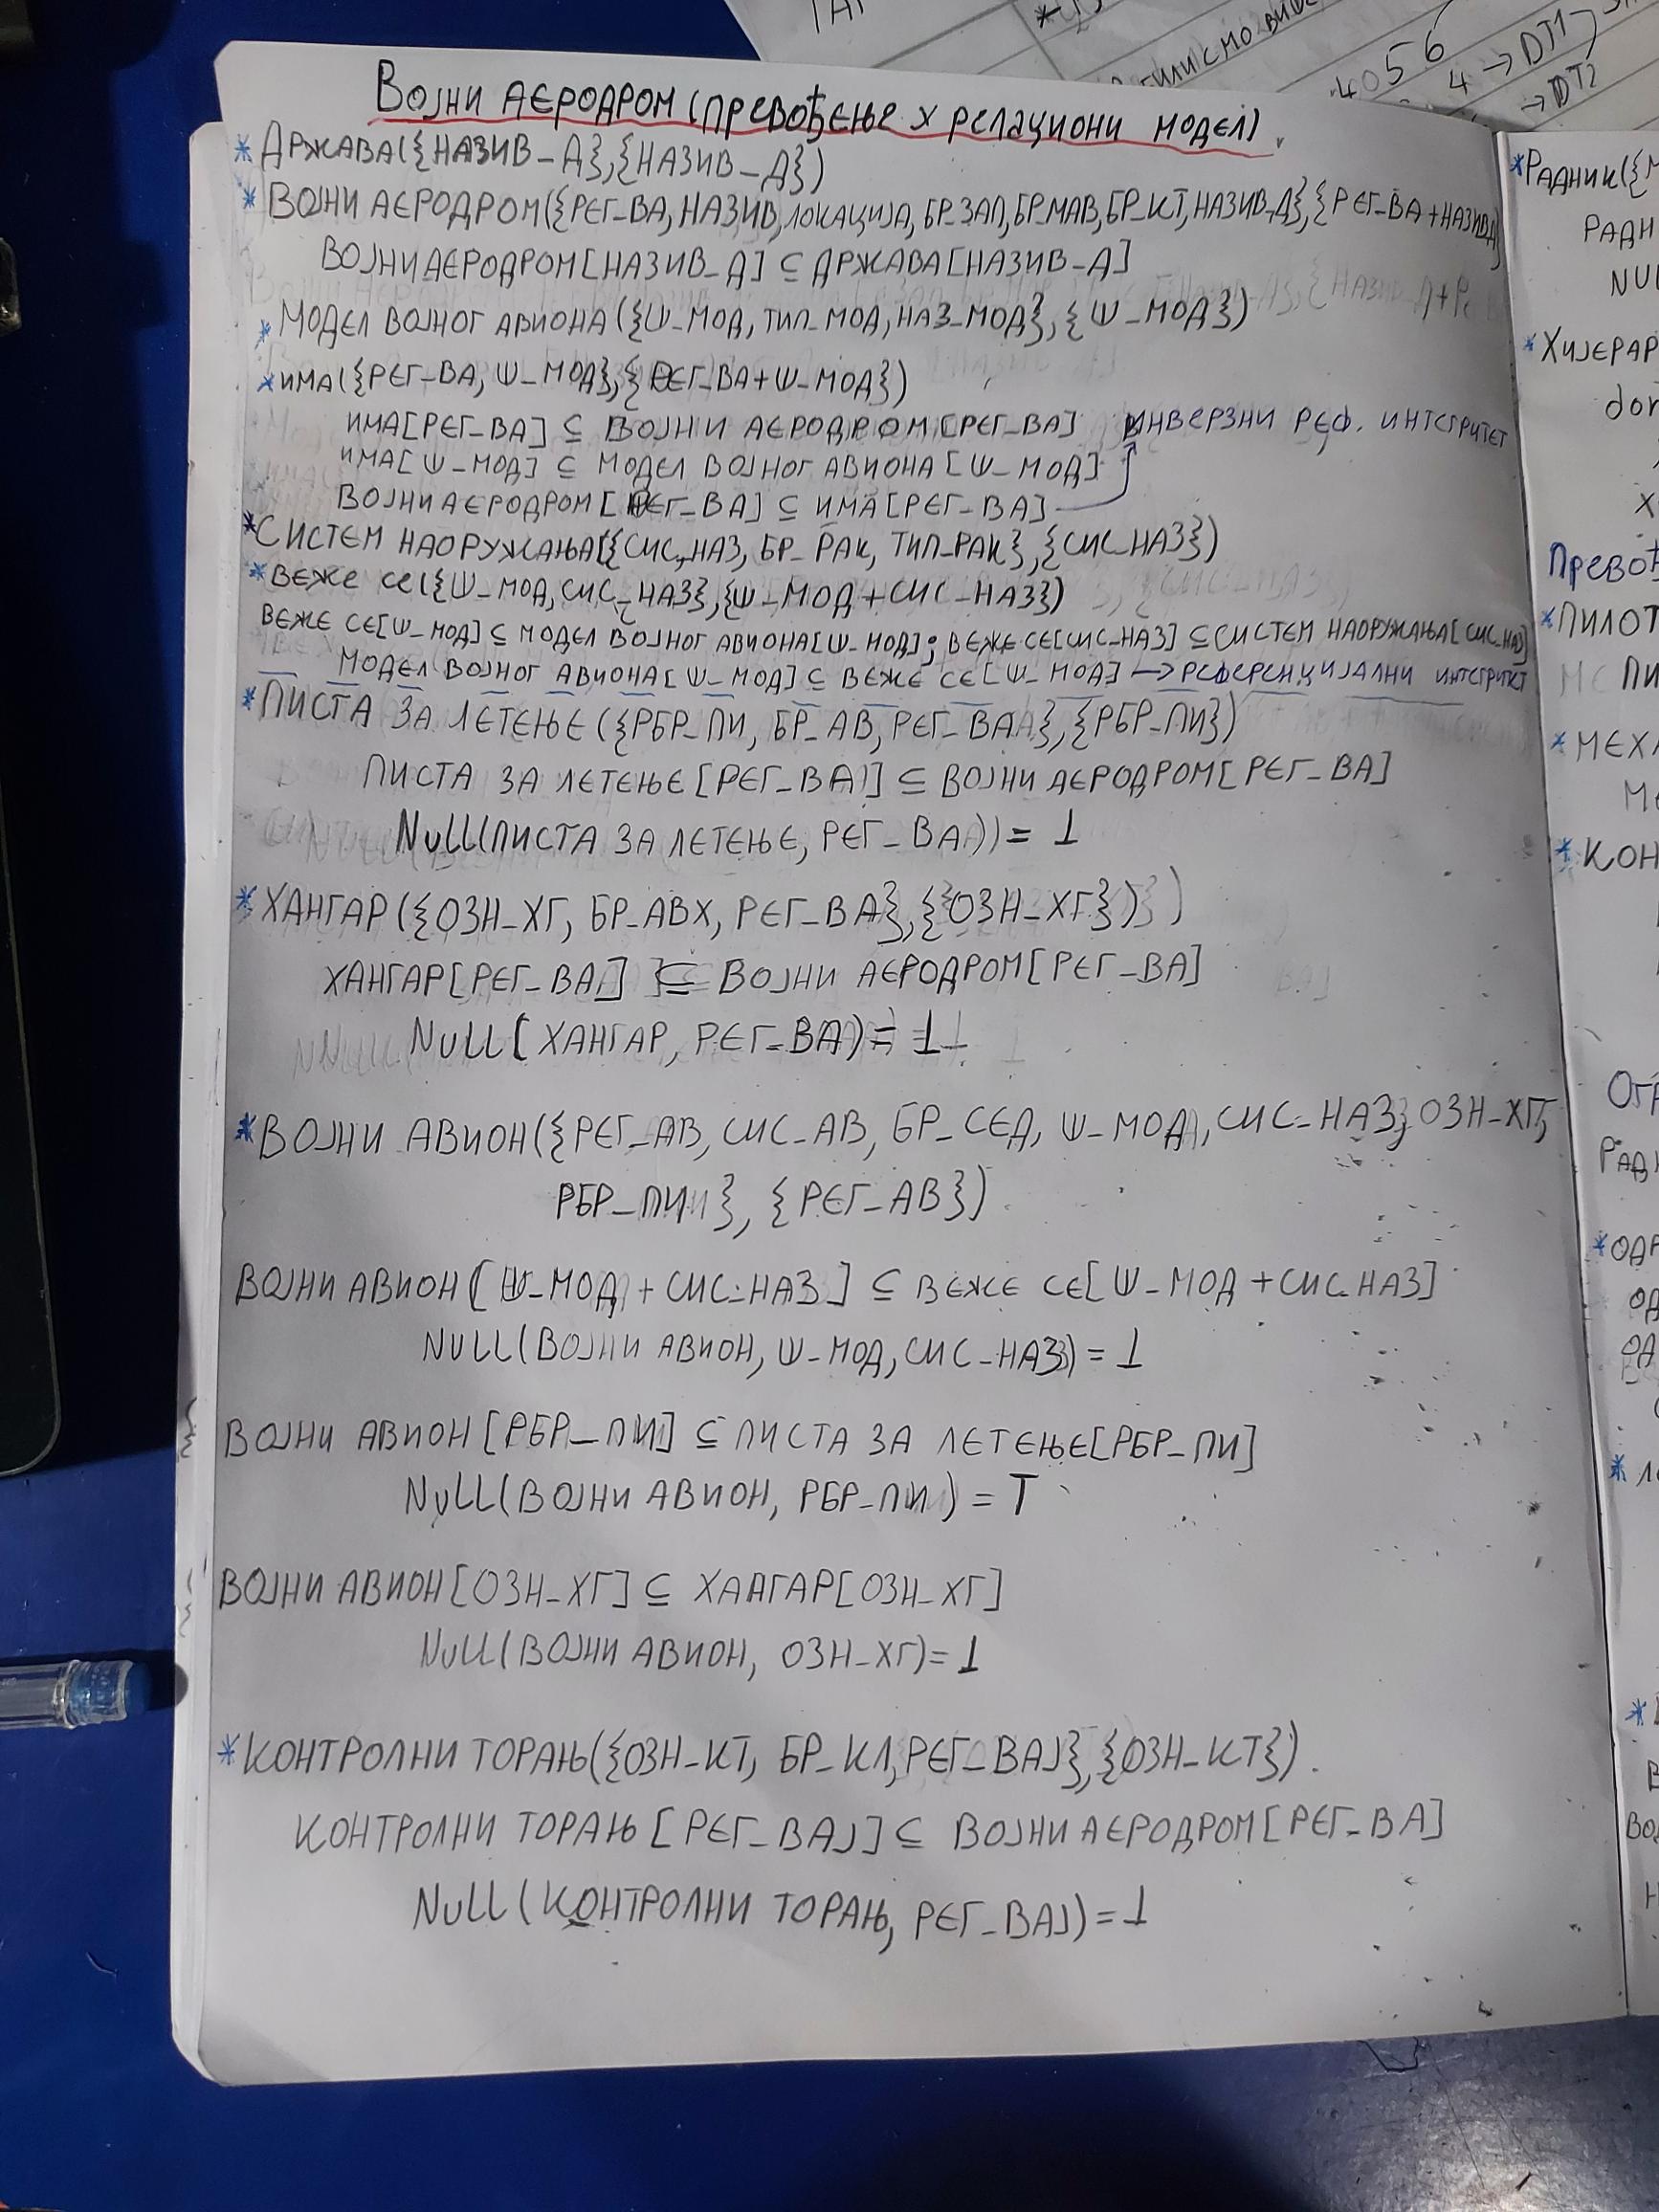 Војни аеродром (превођење у релациони модел).
* Држава({НАЗИВ_Д},{НАЗИВ_Д})
* Војни аеродром({РЕГ_ВА, НАЗИВ, ЛОКАЦИЈА, БР_ЗАП, БР_МАВ, БР_КТ, НАЗИВ_Д},{РЕГ_ВА+НАЗИВ_Д})
ВОЈНИ АЕРОДРОМ[НАЗИВ_Д] ⊆ ДРЖАВА[НАЗИВ_Д]
* МОДЕЛ ВОЈНОГ АВИОНА({Ш_МОД, ТИП_МОД, НАЗ_МОД},{Ш_МОД})
* ИМА({РЕГ_ВА, Ш_МОД},{РЕГ_ВА+Ш_МОД})
ИМА[РЕГ_ВА] ⊆ ВОЈНИ АЕРОДРОМ[РЕГ_ВА] ИНВЕРЗНИ РЕФ. ИНТЕГРИТЕТ
ИМА[Ш_МОД] ⊆ МОДЕЛ ВОЈНОГ АВИОНА[Ш_МОД]
ВОЈНИ АЕРОДРОМ[РЕГ_ВА] ⊆ ИМА[РЕГ_ВА]
* СИСТЕМ НАОРУЖАЊА({СИС_НАЗ, БР_РАК, ТИП_РАК},{СИС_НАЗ})
* ВЕЖЕ СЕ({Ш_МОД, СИС_НАЗ},{Ш_МОД+СИС_НАЗ})
ВЕЖЕ СЕ[Ш_МОД] ⊆ МОДЕЛ ВОЈНОГ АВИОНА[Ш_МОД]; ВЕЖЕ СЕ[СИС_НАЗ] ⊆ СИСТЕМ НАОРУЖАЊА[СИС_НАЗ]
МОДЕЛ ВОЈНОГ АВИОНА[Ш_МОД] ⊆ ВЕЖЕ СЕ[Ш_МОД] → РЕФЕРЕНЦИЈАЛНИ ИНТЕГРИТЕТ
* ПИСТА ЗА ЛЕТЕЊЕ({РБР_ПИ, БР_АВ, РЕГ_ВА},{РБР_ПИ})
ПИСТА ЗА ЛЕТЕЊЕ[РЕГ_ВА] ⊆ ВОЈНИ АЕРОДРОМ[РЕГ_ВА]
NULL(ПИСТА ЗА ЛЕТЕЊЕ, РЕГ_ВА) = ⊥
* ХАНГАР({ОЗН_ХГ, БР_АВХ, РЕГ_ВА},{ОЗН_ХГ})
ХАНГАР[РЕГ_ВА] ⊆ ВОЈНИ АЕРОДРОМ[РЕГ_ВА]
NULL(ХАНГАР, РЕГ_ВА) = ⊥
* ВОЈНИ АВИОН({РЕГ_АВ, СИС_АВ, БР_СЕД, Ш_МОД, СИС_НАЗ, ОЗН_ХГ,
РБР_ПИ},{РЕГ_АВ})
ВОЈНИ АВИОН[Ш_МОД + СИС_НАЗ] ⊆ ВЕЖЕ СЕ[Ш_МОД + СИС_НАЗ]
NULL(ВОЈНИ АВИОН, Ш_МОД, СИС_НАЗ) = ⊥
ВОЈНИ АВИОН[РБР_ПИ] ⊆ ПИСТА ЗА ЛЕТЕЊЕ[РБР_ПИ]
NULL(ВОЈНИ АВИОН, РБР_ПИ) = T
ВОЈНИ АВИОН[ОЗН_ХГ] ⊆ ХАНГАР[ОЗН_ХГ]
NULL(ВОЈНИ АВИОН, ОЗН_ХГ) = ⊥
* КОНТРОЛНИ ТОРАЊ({ОЗН_КТ, БР_КЛ, РЕГ_ВАЈ},{ОЗН_КТ}).
КОНТРОЛНИ ТОРАЊ[РЕГ_ВАЈ] ⊆ ВОЈНИ АЕРОДРОМ[РЕГ_ВА]
NULL(КОНТРОЛНИ ТОРАЊ, РЕГ_ВАЈ) = ⊥
4056
4 → DT1
→ DT2
* РАДНИК({
* ПИЛОТ